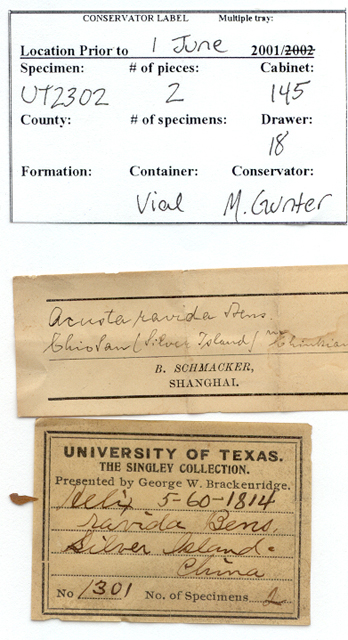 CONSERVATOR LABEL Multiple tray:
Location Prior to 1 June 2001/2002
Specimen: # of pieces: Cabinet:
UT2302 2 145
County: # of specimens: Drawer:
18
Formation: Container: Conservator:
Vial M. Gunter
Acusta ravida Bens.
(Silver Island)
B. SCHMACKER,
SHANGHAI.
UNIVERSITY OF TEXAS.
THE SINGLEY COLLECTION.
Presented by George W. Brackenridge.
Helix 5-60-1814
ravida Bens.
Silver Island.
China
No 1301 No. of Specimens 2